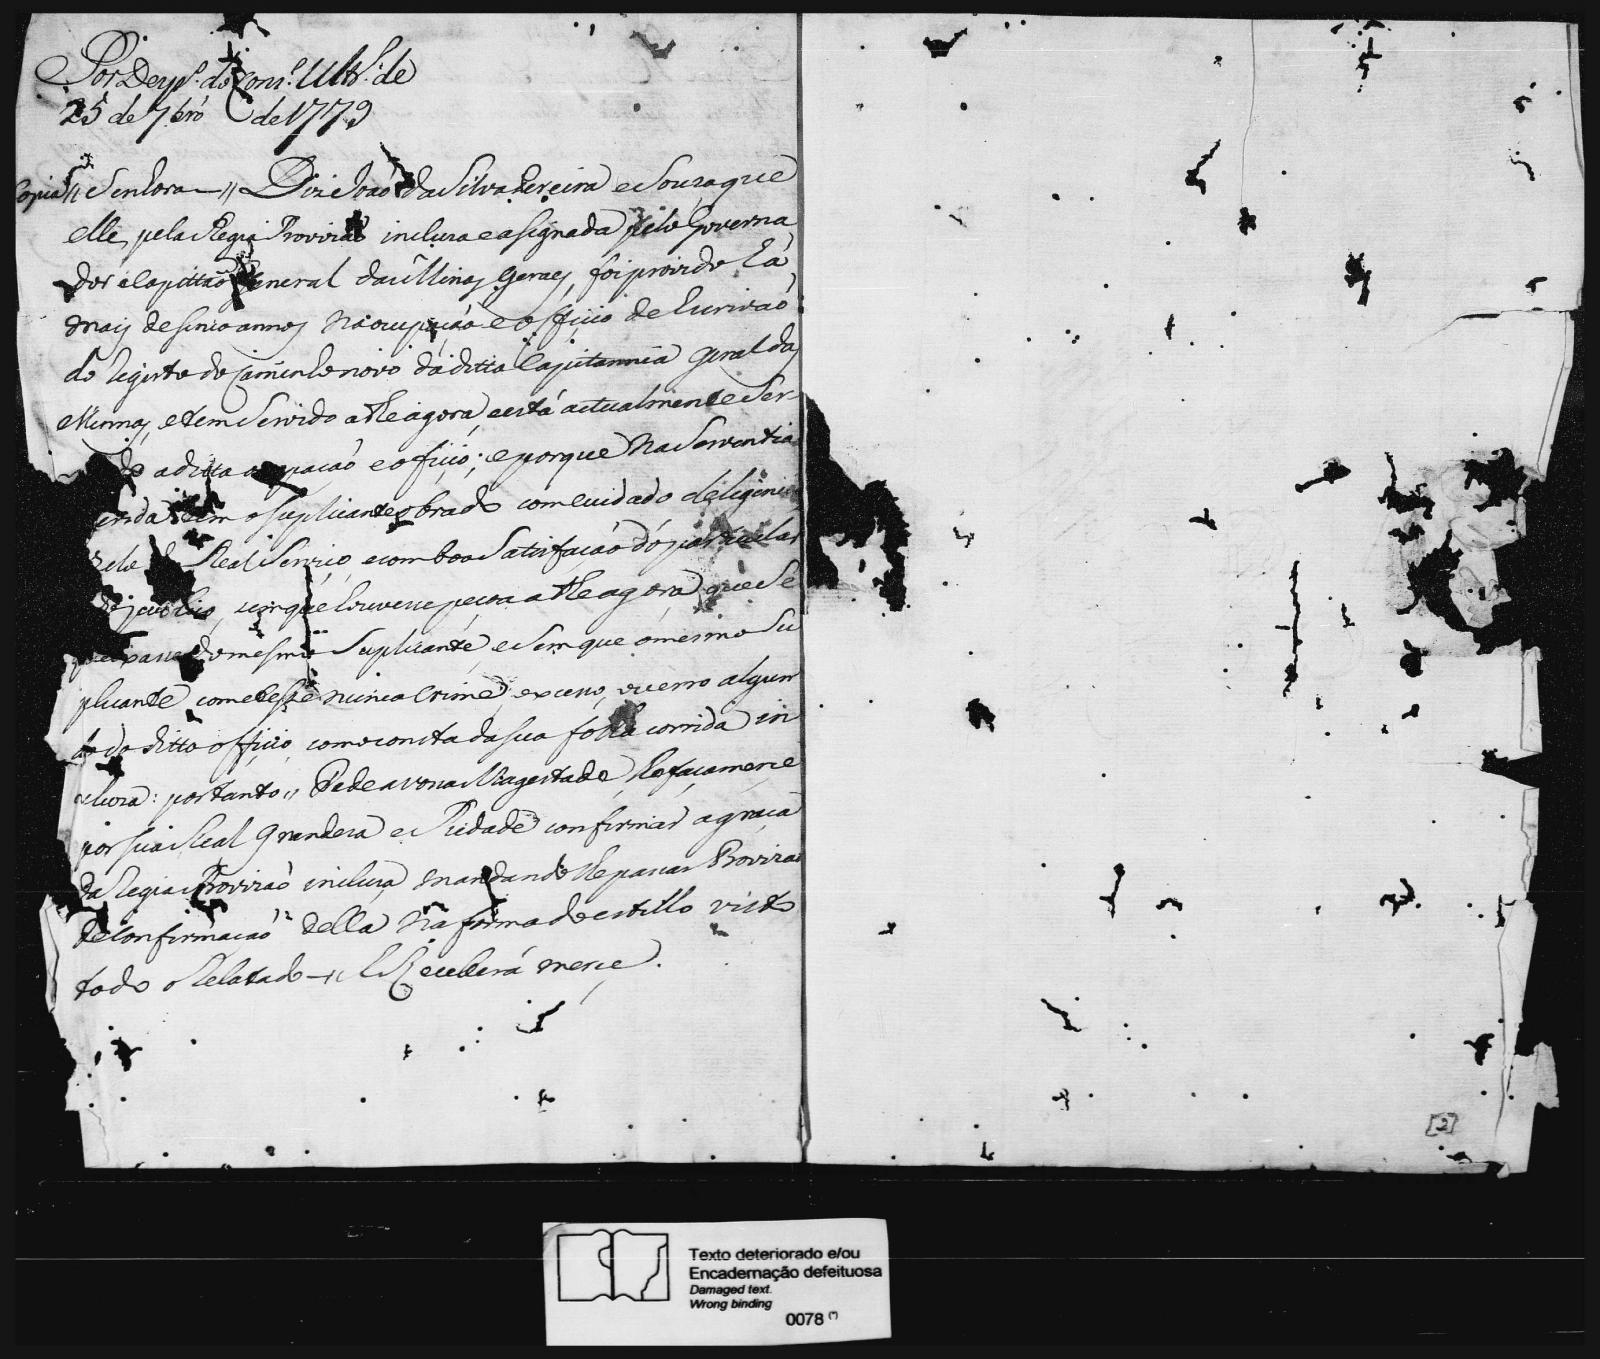 Por Desp.º do Cons.º Ultr.º de
25 de 7bro de 1779
Copia // Senhora —// Diz João da Silva Pereira e Souza que
elle, pela Regia Provizaõ incluza e asignada pelo Governa
dor e Capittaõ General das Minas Geraes, foi provido há
mais de sinco annos na ocupaçaõ e officio de Escrivaõ
do Registo do Caminho novo da ditta Capitannia geral das
Minnas, e tem Servido athe agora, e está actualmente Ser-
do a ditta ocupaçaõ e oficio; e porque na Serventia
tem o suplicante obrado com cuidado deligencia
zelo Real Serviço, e com boa Satisfaçaõ do particular
do publico, sem que houvesse pessoa athe agora que Se
do mesmo Suplicante, e Sem que o mesmo Su
plicante cometesse nunca Crime, excesso, ou erro algum
do ditto officio, como consta da sua folha corrida in
cluza: portanto // Pede a vossa Magestade lhe faça merce
por sua Real Grandeza e Piedade confirmar a graça
da Regia Provizaõ incluza, mandando lhe passar Provizaõ
de Confirmaçaõ della na forma do estillo visto
todo o Relatado —// E Receberá merce.
[2]
Texto deteriorado e/ou
Encadernação defeituosa
Damaged text.
Wrong binding
0078 (*)